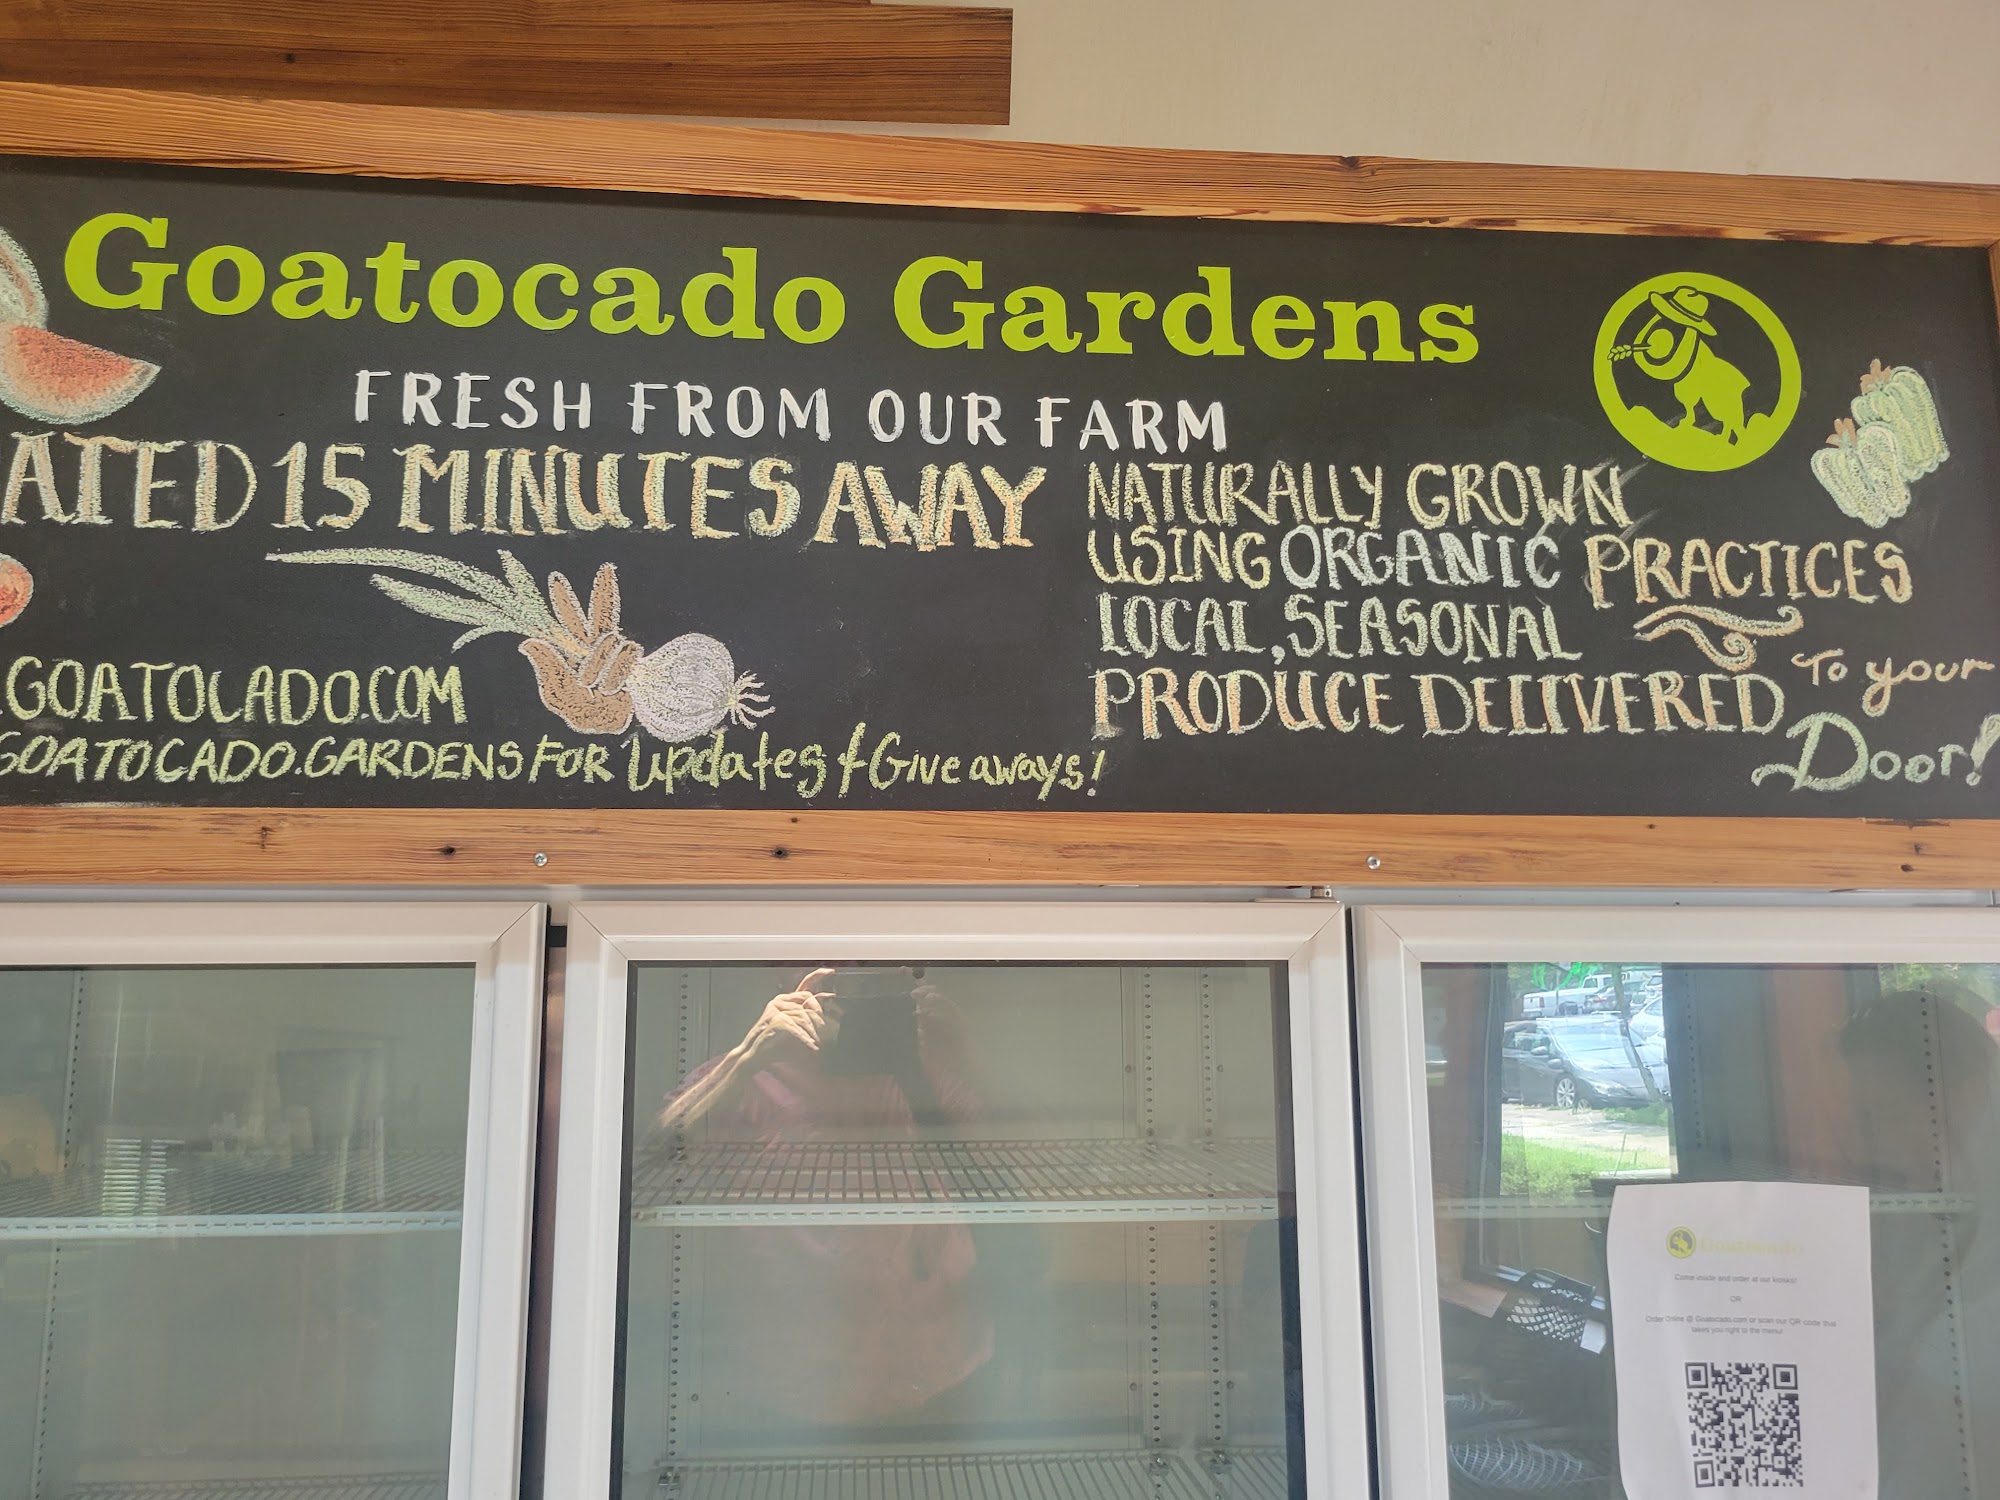 Goatocado Gardens
FRESH FROM OUR FARM
ATED 15 MINUTES AWAY
.GOATOCADO.COM
GOATOCADO.GARDENS FOR Updates & Give aways!
NATURALLY GROWN
USING ORGANIC PRACTICES
LOCAL, SEASONAL
PRODUCE DELIVERED To your
Door!
Goatocado
Come inside and order at our kiosks!
OR
Order Online @ Goatocado.com or scan our QR code that
takes you right to the menu!